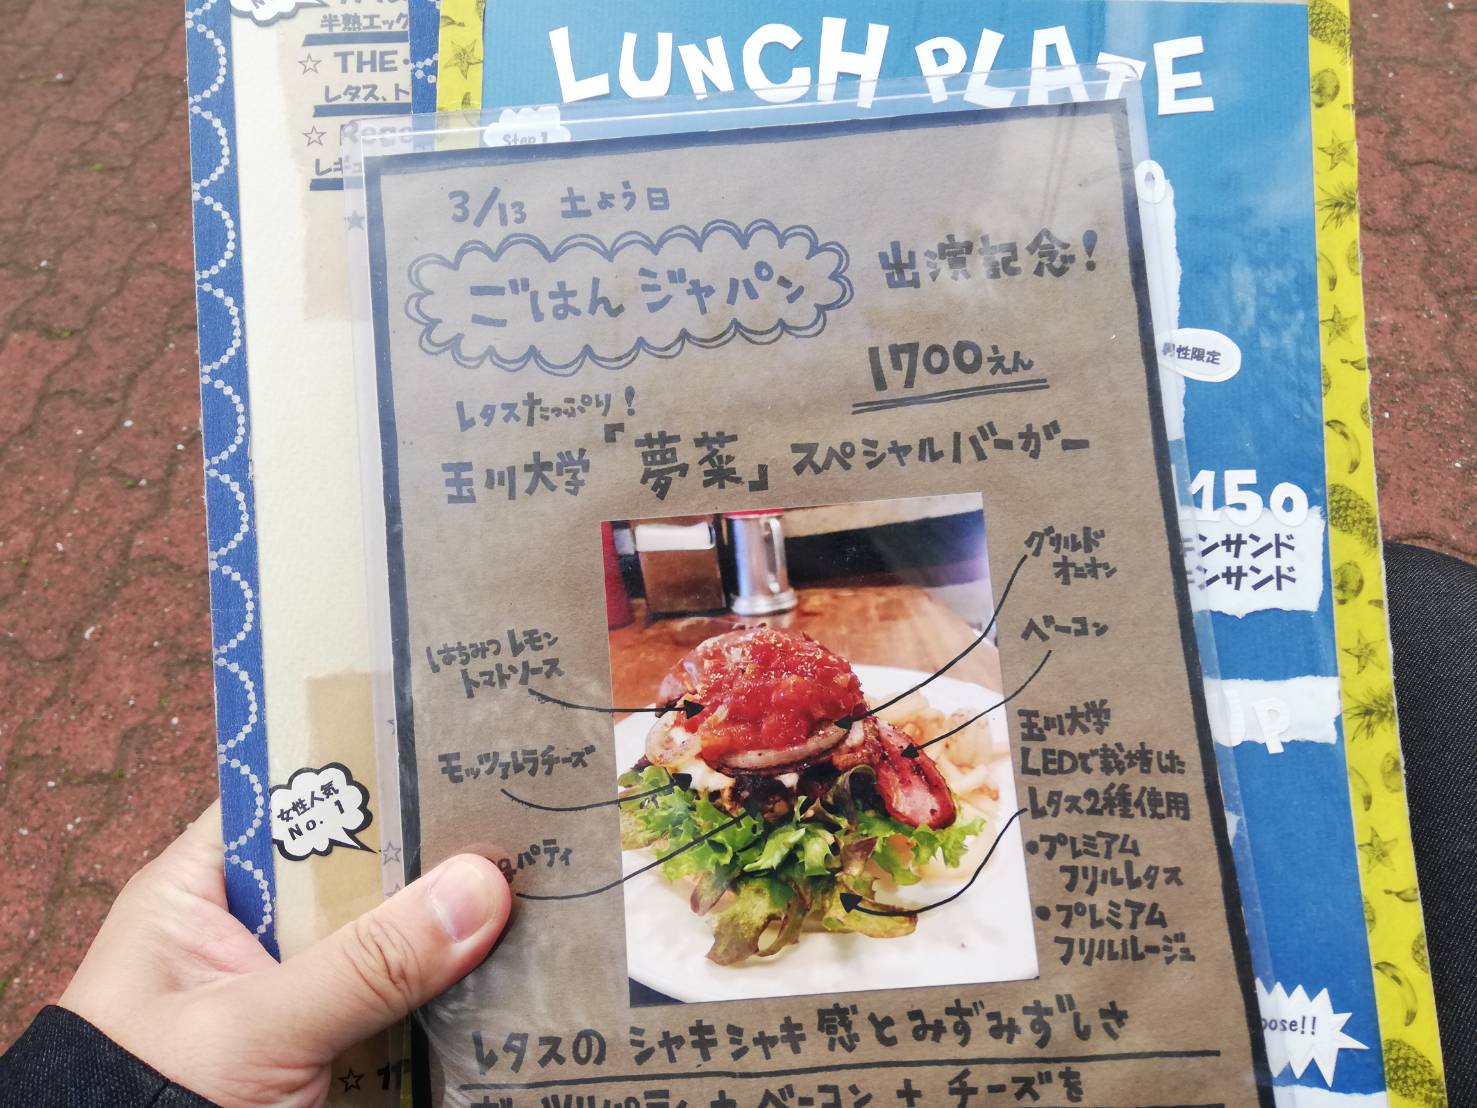 半熟エッグ
☆ THE・
レタス、ト
☆ Rego
レギュ
女性人気
No.1
LUNCH PLATE
Step 1
3/13 土よう日
ごはんジャパン 出演記念!
1700えん
レタスたっぷり!
玉川大学「夢菜」スペシャルバーガー
グリルド
オニオン
ベーコン
はちみつレモン
トマトソース
モッツァレラチーズ
g.パティ
玉川大学
LEDで栽培した
レタス2種使用
•プレミアム
フリルレタス
•プレミアム
フリルルージュ
レタスのシャキシャキ感とみずみずしさ
パティ+ベーコン+チーズを
男性限定
150
ンサンド
ンサンド
UP
oose!!